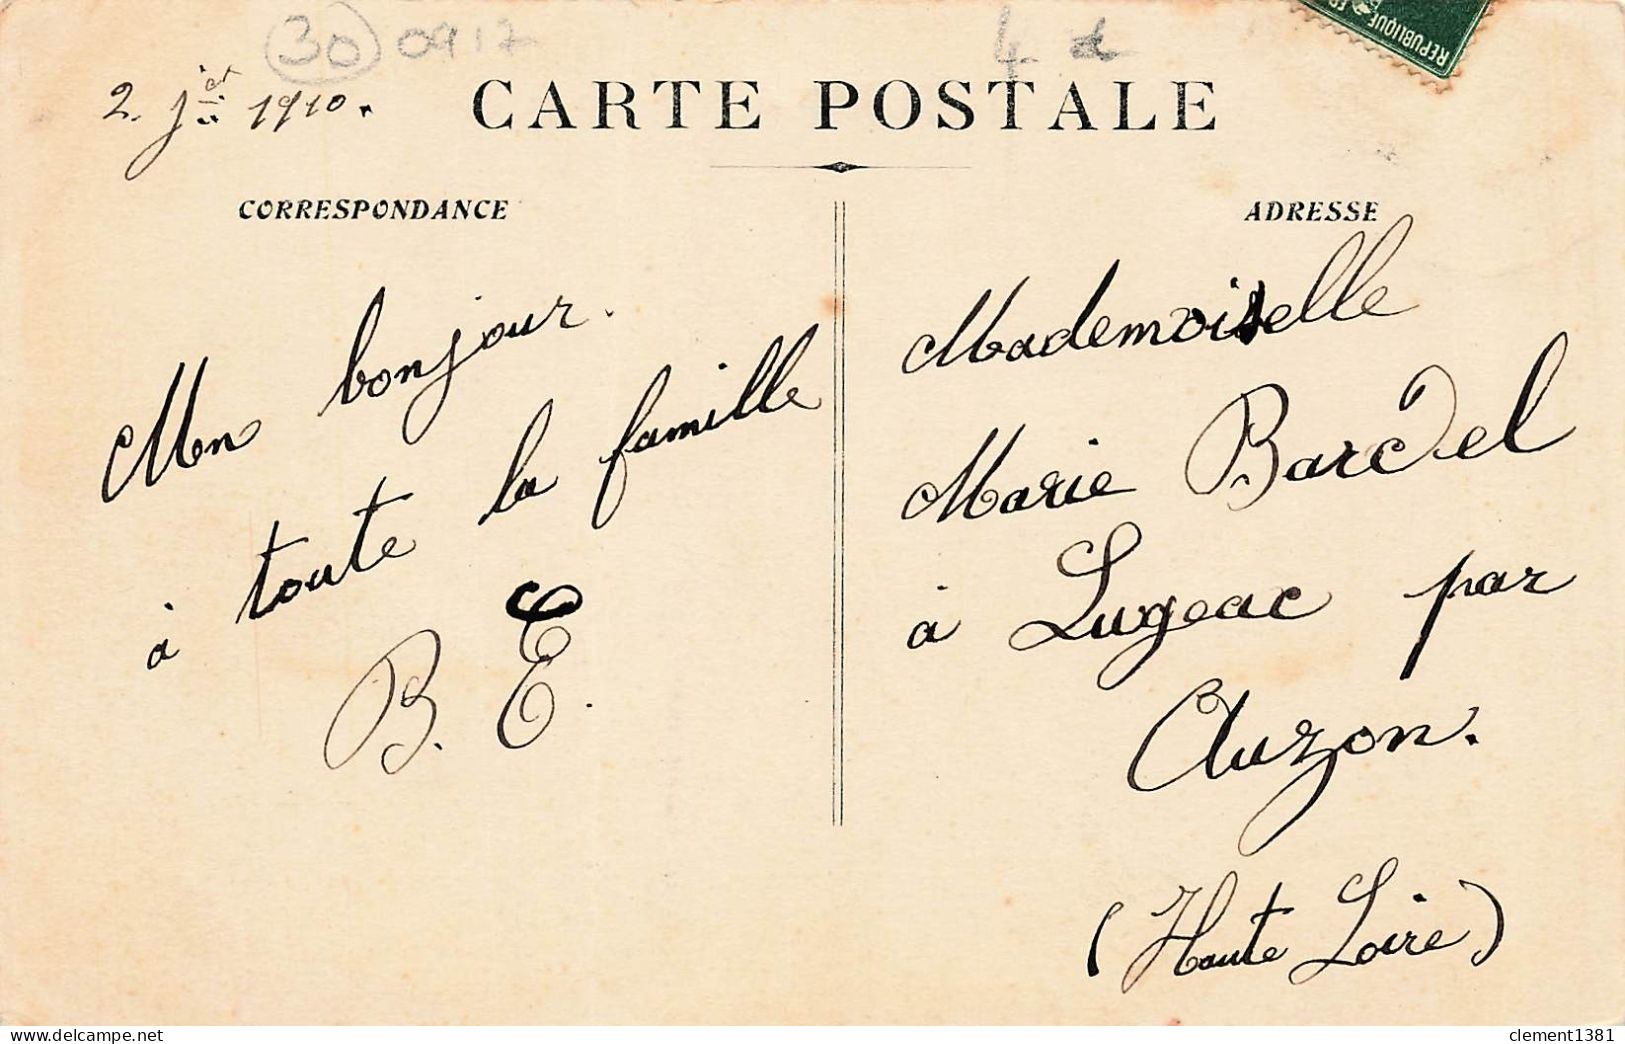 30 0917
4 d
2. jier 1910.
CARTE POSTALE
REPUBLIQUE
CORRESPONDANCE
Mon bonjour.
à toute la famille
B. E.
ADRESSE
Mademoiselle
Marie Bardel
à Lugeac par
Auzon.
(Haute Loire)
delcampe.net
clement1381